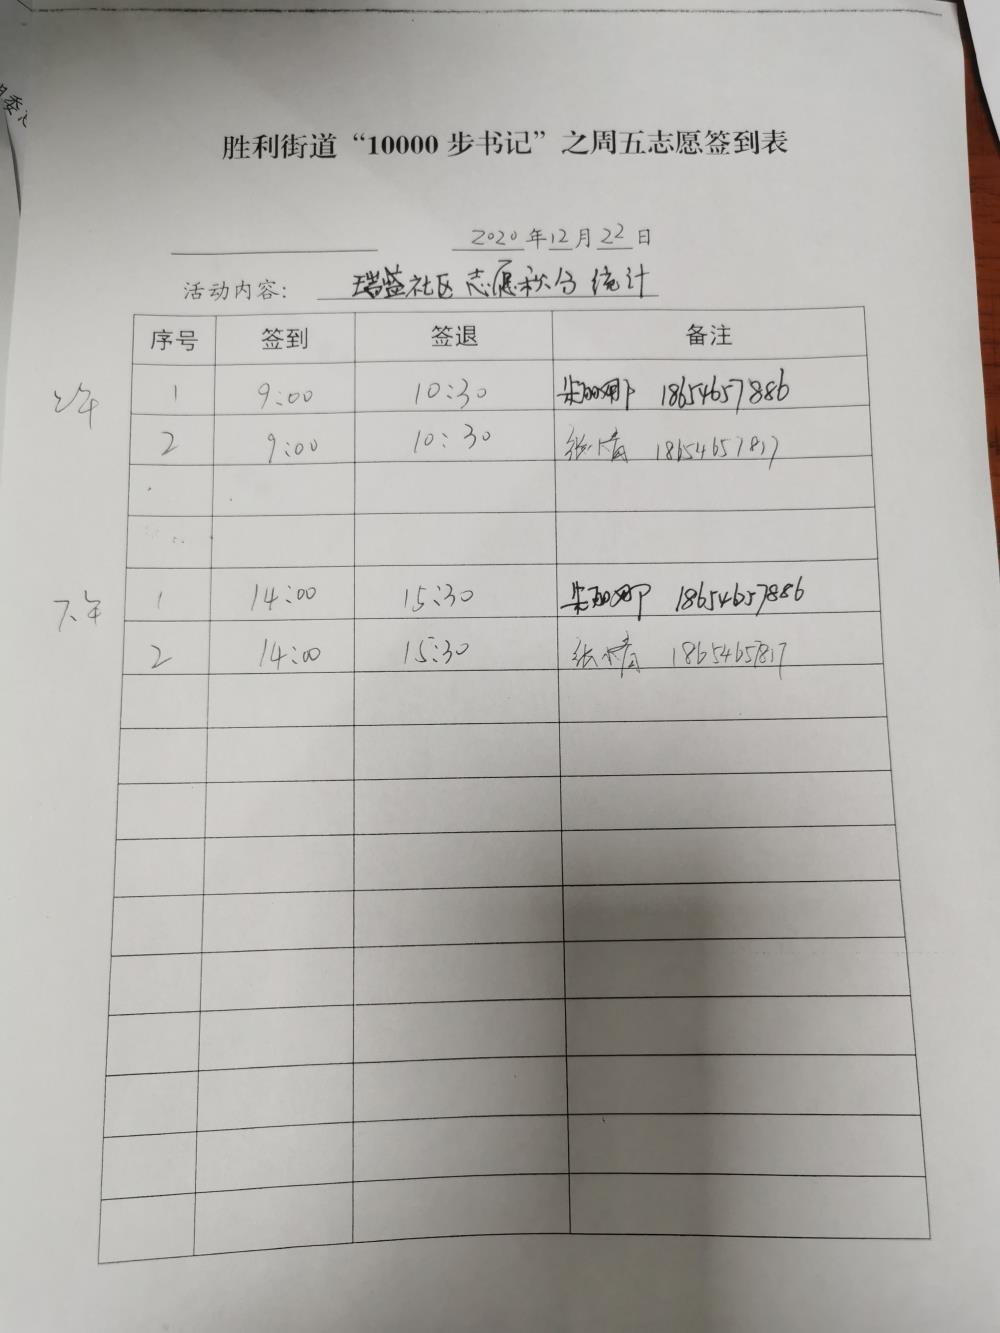 胜利街道“10000 步书记”之周五志愿签到表
2020 年 12 月 22 日
活动内容: 瑞益社区 志愿积分 统计
序号 签到 签退 备注
上午 1 9:00 10:30 18654657886
2 9:00 10:30 张 18654657817
下午 1 14:00 15:30 18654657886
2 14:00 15:30 张 18654657817